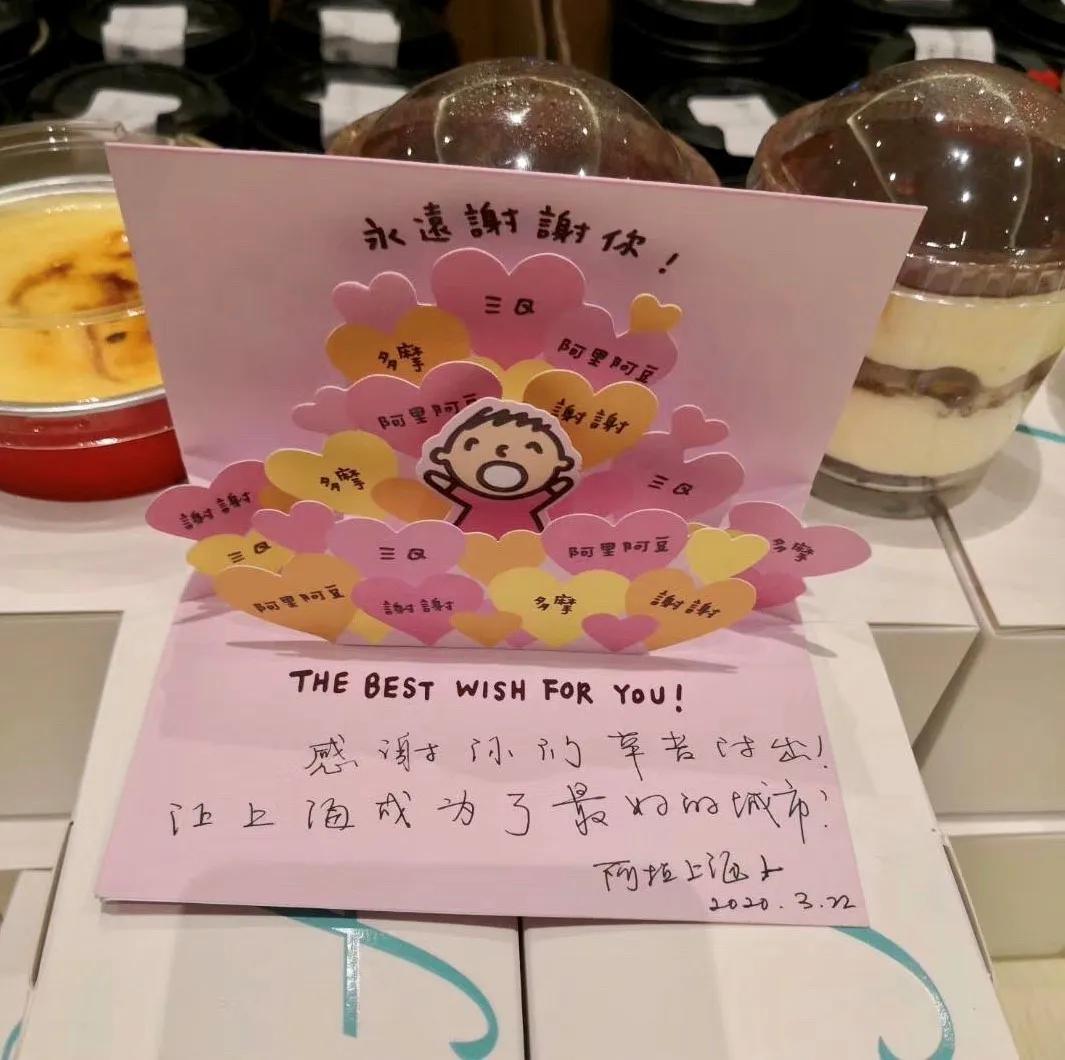 永遠謝謝你！
三Q
多摩
阿里阿豆
阿里阿豆
謝謝
多摩
三Q
謝謝
三Q
三Q
阿里阿豆
多摩
阿里阿豆
謝謝
多摩
謝謝
THE BEST WISH FOR YOU!
感谢你的辛苦付出!
让上海成为了最好的城市!
阿拉上海人
2020.3.22